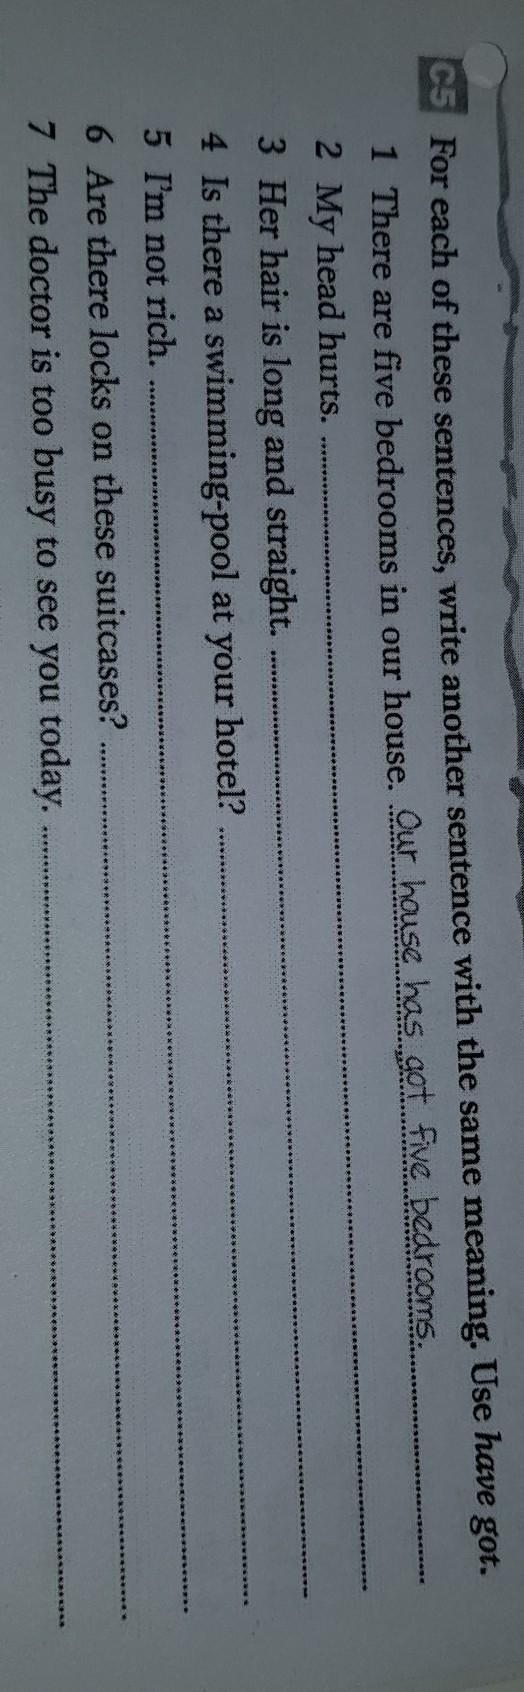 C5 For each of these sentences, write another sentence with the same meaning. Use have got.
1 There are five bedrooms in our house. Our house has got five bedrooms.
2 My head hurts.
3 Her hair is long and straight.
4 Is there a swimming-pool at your hotel?
5 I'm not rich.
6 Are there locks on these suitcases?
7 The doctor is too busy to see you today.